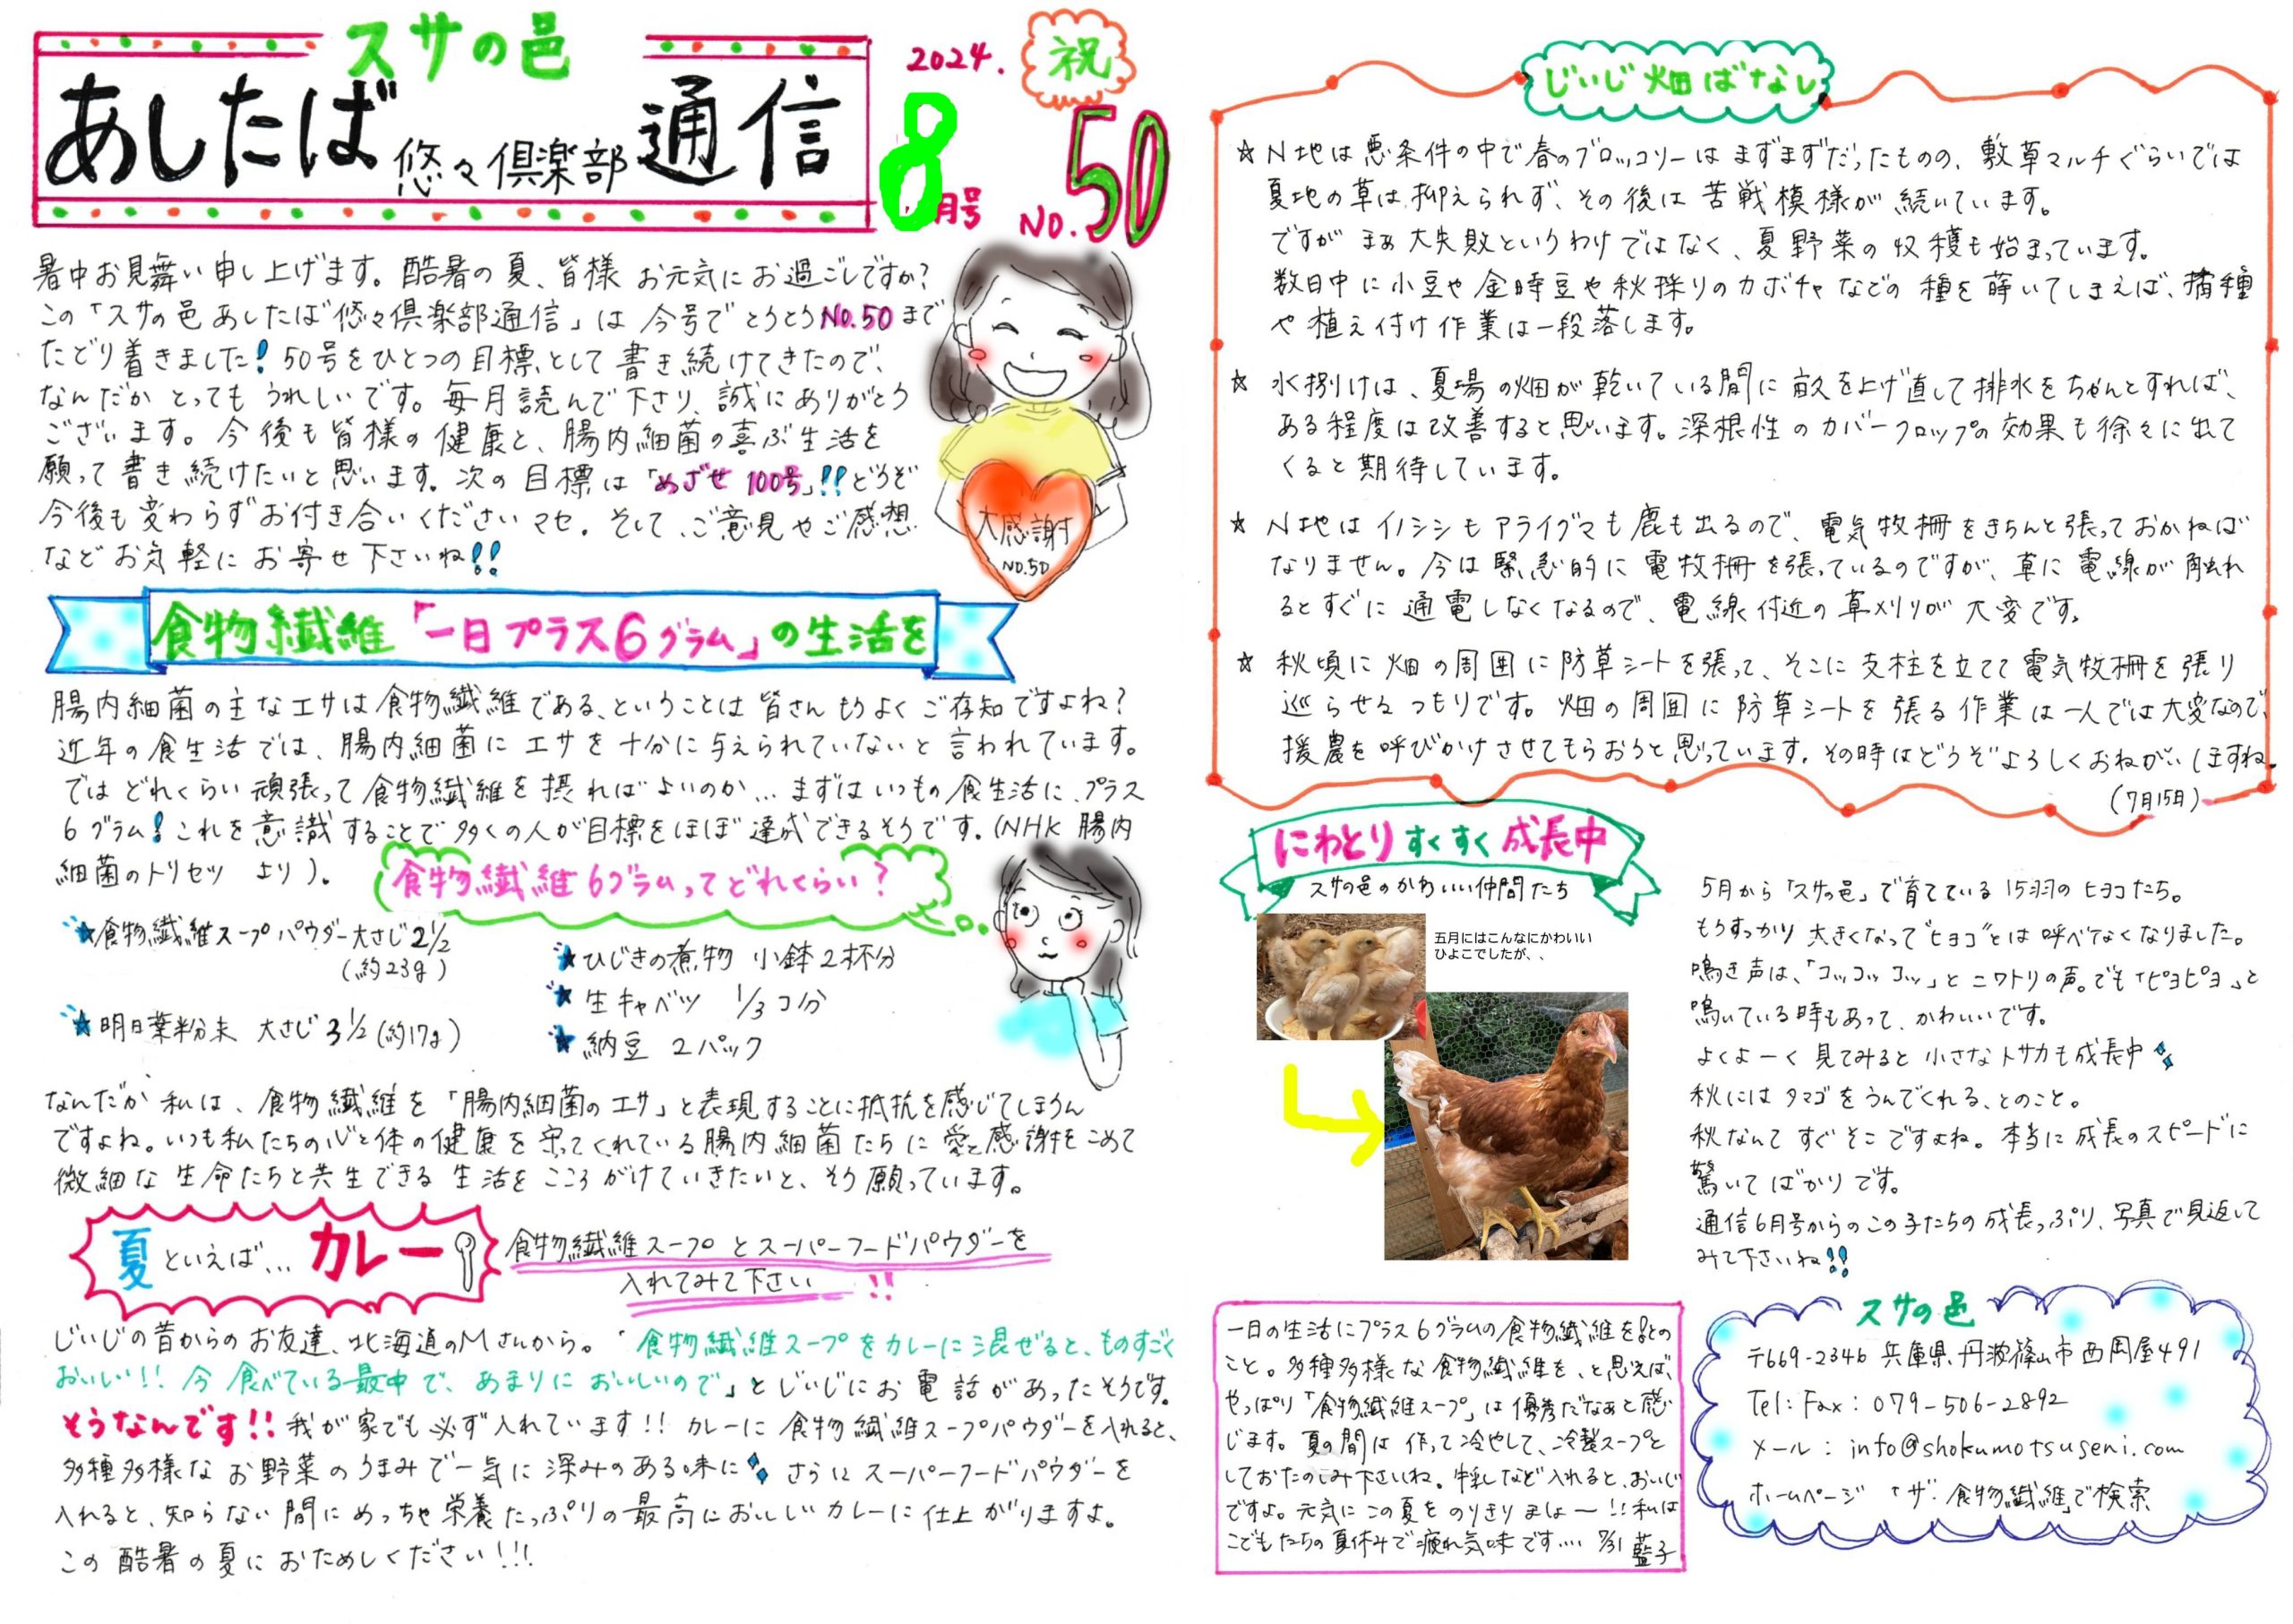 スサの邑
あしたば悠々倶楽部通信
2024.
8月号
祝
NO.50
暑中お見舞い申し上げます。酷暑の夏、皆様お元気にお過ごしですか?
この「スサの邑あしたば悠々倶楽部通信」は今号でとうとうNo.50まで
たどり着きました!50号をひとつの目標、として書き続けてきたので、
なんだかとってもうれしいです。毎月読んで下さり、誠にありがとう
ございます。今後も皆様の健康と、腸内細菌の喜ぶ生活を
願って書き続けたいと思います。次の目標は「めざせ100号」!!どうぞ
今後も変わらずお付き合いくださいマセ。そして、ご意見やご感想
などお気軽にお寄せ下さいね!!
大感謝
NO.50
食物繊維「一日プラス6グラム」の生活を
腸内細菌の主なエサは食物繊維である、ということは皆さんもうよくご存知ですよね?
近年の食生活では、腸内細菌にエサを十分に与えられていないと言われています。
ではどれくらい頑張って食物繊維を摂ればよいのか...まずはいつもの食生活に、プラス
6グラム!これを意識することで多くの人が目標をほぼ達成できるそうです。(NHK腸内
細菌のトリセツより)。
食物繊維6グラムってどれくらい?
★食物繊維スープパウダー大さじ2½
(約23g)
★明日葉粉末 大さじ3½(約17g)
★ひじきの煮物 小鉢2杯分
★生キャベツ 1/3コ分
★納豆 2パック
なんだか私は、食物繊維を「腸内細菌のエサ」と表現することに抵抗を感じてしまうん
ですよね。いつも私たちの心と体の健康を守ってくれている腸内細菌たちに愛と感謝をこめて
微細な生命たちと共生できる生活をこころがけていきたいと、そう願っています。
夏といえば...カレー
食物繊維スープとスーパーフードパウダーを
入れてみて下さい!!
じいじの昔からのお友達、北海道のMさんから。「食物繊維スープをカレーに混ぜると、ものすごく
おいしい!!今食べている最中で、あまりにおいしいので」とじいじにお電話があったそうです。
そうなんです!!我が家でも必ず入れています!!カレーに食物繊維スープパウダーを入れると、
多種多様なお野菜のうまみで一気に深みのある味に さらにスーパーフードパウダーを
入れると、知らない間にめっちゃ栄養たっぷりの最高においしいカレーに仕上がりますよ。
この酷暑の夏におためしください!!!
じいじ畑ばなし
☆N地は悪条件の中で春のブロッコリーはまずまずだったものの、敷草マルチぐらいでは
夏地の草は抑えられず、その後は苦戦模様が続いています。
ですがまぁ大失敗というわけではなく、夏野菜の収穫も始まっています。
数日中に小豆や金時豆や秋採りのカボチャなどの種を蒔いてしまえば、播種
や植え付け作業は一段落します。
☆水捌けは、夏場の畑が乾いている間に畝を上げ直して排水をちゃんとすれば、
ある程度は改善すると思います。深根性のカバークロップの効果も徐々に出て
くると期待しています。
☆N地はイノシシもアライグマも鹿も出るので、電気牧柵をきちんと張っておかねば
なりません。今は緊急的に電牧柵を張っているのですが、草に電線が触れ
るとすぐに通電しなくなるので、電線付近の草刈りが大変です。
☆秋頃に畑の周囲に防草シートを張って、そこに支柱を立てて電気牧柵を張り
巡らせるつもりです。畑の周囲に防草シートを張る作業は一人では大変なので、
援農を呼びかけさせてもらおうと思っています。その時はどうぞよろしくおねがいしますね。
(7月15日)
にわとりすくすく成長中
スサの邑のかわいい仲間たち
五月にはこんなにかわいい
ひよこでしたが、、
5月から「スサの邑」で育てている15羽のヒヨコたち。
もうすっかり大きくなって"ヒヨコ"とは呼べなくなりました。
鳴き声は、「コッコッコッ」とニワトリの声。でも「ピヨピヨ」と
鳴いている時もあって、かわいいです。
よくよーく見てみると小さなトサカも成長中
秋にはタマゴをうんでくれる、とのこと。
秋なんてすぐそこですよね。本当に成長のスピードに
驚いてばかりです。
通信6月号からのこの子たちの成長っぷり、写真で見返して
みて下さいね!!
一日の生活にプラス6グラムの食物繊維を!との
こと。多種多様な食物繊維を、と思えば、
やっぱり「食物繊維スープ」は優秀だなぁと感
じます。夏の間は作って冷やして、冷製スープと
しておたのしみ下さいね。牛乳など入れると、おいしい
ですよ。元気にこの夏をのりきりましょ〜!!私は
こどもたちの夏休みで疲れ気味です.... 7/31 藍子
スサの邑
〒669-2346 兵庫県丹波篠山市西岡屋491
Tel:Fax:079-506-2892
メール:info@shokumotsuseni.com
ホームページ 「ザ・食物繊維」で検索